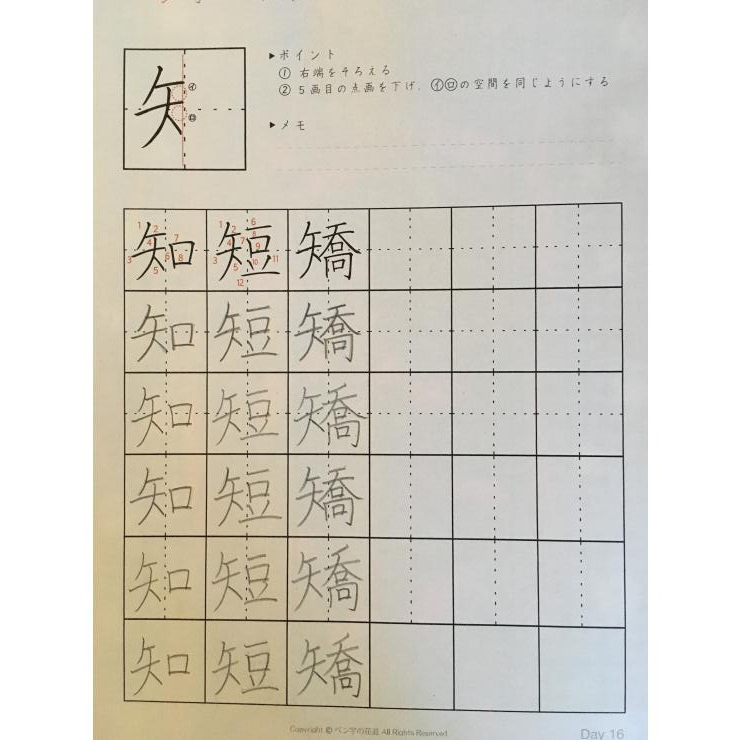 矢
㋑
㋺
▶ポイント
① 右端をそろえる
② 5画目の点画を下げ、㋑㋺の空間を同じようにする
▶メモ
知 短 矯
知 短 矯
知 短 矯
知 短 矯
知 短 矯
知 短 矯
Copyright © ペン字の花道 All Rights Reserved.
Day 16